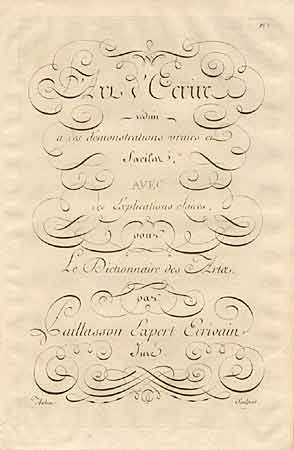 L'Art d'Ecrire
réduit
a des démonstrations vraies et
faciles,
AVEC
des Explications claires,
pour
Le Dictionnaire des Arts.
par
Paillasson Expert Ecrivain
Juré
Aubin
Sculpsit